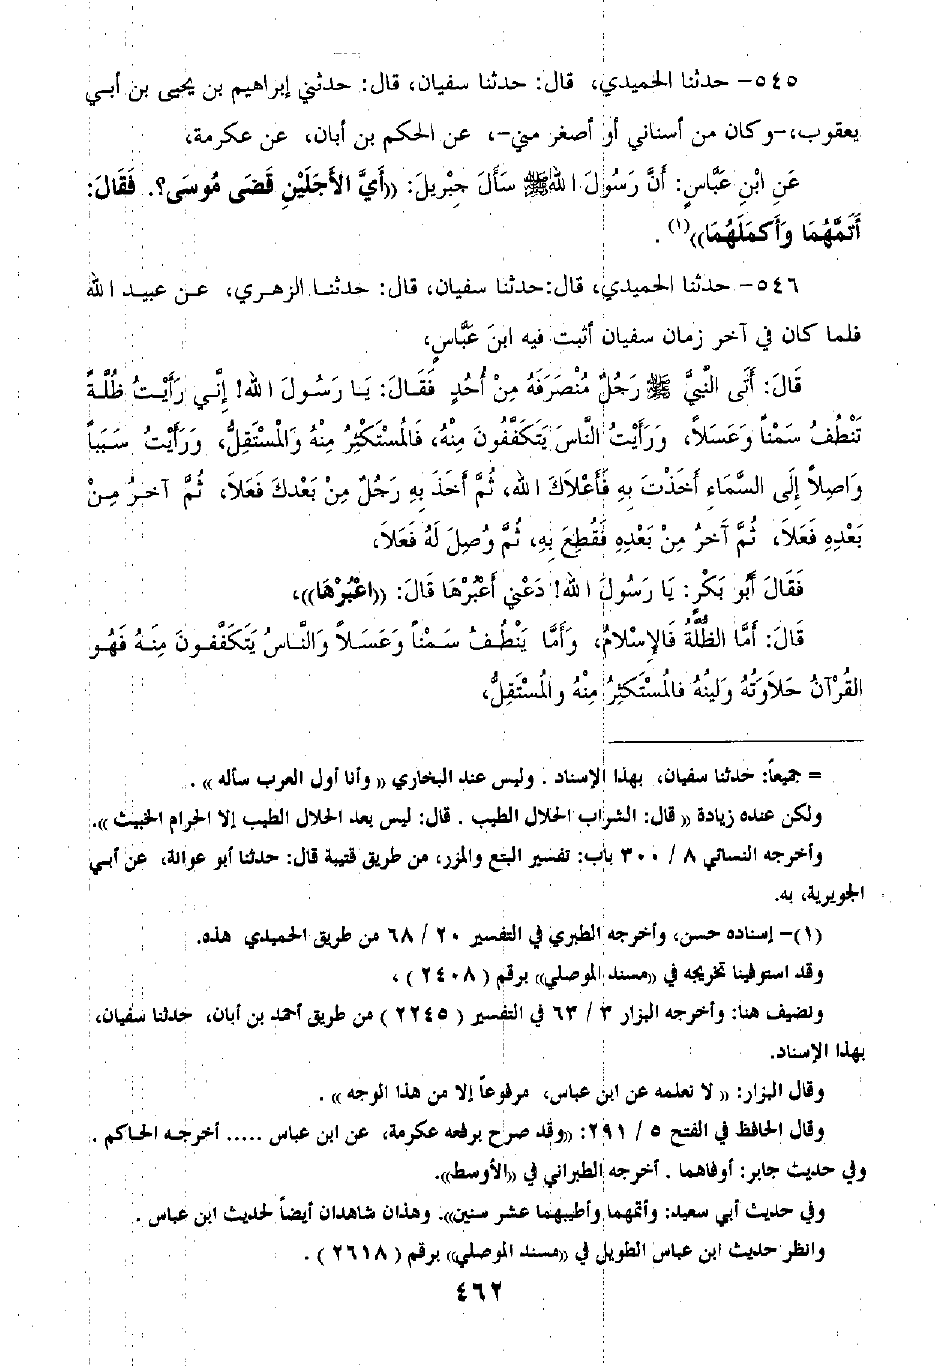 ٥٤٥- حدثنا الحميدي، قال: حدثنا سفيان، قال: حدثني إبراهيم بن يحيى بن أبي
يعقوب،-وكان من أسناني أو أصغر مني-، عن الحكم بن أبان، عن عكرمة،
عَنِ ابْنِ عَبَّاسٍ: أَنَّ رَسُولَ اللهِ ﷺ سَأَلَ جِبْرِيلَ: ((أَيَّ الأَجَلَيْنِ قَضَى مُوسَى؟. فَقَالَ:
أَتَمَّهُمَا وَأَكمَلَهُمَا))(١) .
٥٤٦- حدثنا الحميدي، قال:حدثنا سفيان، قال: حدثنا الزهري، عن عبيد الله
فلما كان في آخر زمان سفيان أثبت فيه ابنَ عَبَّاسٍ،
قَالَ: أَتَى النَّبِيَّ ﷺ رَجُلٌ مُنْصَرَفَهُ مِنْ أُحُدٍ فَقَالَ: يَا رَسُولَ الله! إِنِّي رَأَيْتُ ظُلَّةً
تَنْطُفُ سَمْناً وَعَسَلاً، وَرَأَيْتُ النَّاسَ يَتَكَفَّفُونَ مِنْهُ، فَالمُسْتَكْثِرُ مِنْهُ وَالْمُسْتَقِلُّ، وَرَأَيْتُ سَبَباً
وَاصِلاً إِلَى السَّمَاءِ أَخَذْتَ بِهِ فَأَعْلاَكَ الله، ثُمَّ أَخَذَ بِهِ رَجُلٌ مِنْ بَعْدكَ فَعَلاَ، ثُمَّ آخرُ مِنْ
بَعْدِهِ فَعَلاَ، ثُمَّ آخَرُ مِنْ بَعْدِهِ فَقُطِعَ بِهِ، ثُمَّ وُصِلَ لَهُ فَعَلاَ،
فَقَالَ أَبُو بَكْرٍ: يَا رَسُولَ الله! دَعْنِي أَعْبُرْهَا قَالَ: ((اعْبُرْهَا))،
قَالَ: أَمَّا الظُّلَّةُ فَالإِسْلامُ، وَأَمَّا يَنْطُفُ سَمْناً وَعَسَلاً وَالنَّاسُ يَتَكَفَّفُونَ مِنْهُ فَهُو
القُرْآنُ حَلاَوَتُهُ وَلِينُهُ فالمُسْتَكثِرُ مِنْهُ والمُسْتَقِلُّ،
= جميعاً: حدثنا سفيان، بهذا الإسناد . وليس عند البخاري (( وأنا أول العرب سأله )) .
ولكن عنده زيادة (( قال: الشراب الحلال الطيب . قال: ليس بعد الحلال الطيب إلا الحرام الخبيث )).
وأخرجه النسائي ٨ / ٣٠٠ باب: تفسير البتع والمزر، من طريق قتيبة قال: حدثنا أبو عوالة، عن أبي
الجويرية، به.
(١)- إسناده حسن، وأخرجه الطبري في التفسير ٢٠ / ٦٨ من طريق الحميدي هذه.
وقد استوفينا تخريجه في ((مسند الموصلي)) برقم ( ٢٤٠٨ ) ،
ونضيف هنا: وأخرجه البزار ٣ / ٦٣ في التفسير ( ٢٢٤٥ ) من طريق أحمد بن أبان، حدثنا سفيان،
بهذا الإسناد.
وقال البزار: (( لا نعلمه عن ابن عباس، مرفوعاً إلا من هذا الوجه )) .
وقال الحافظ في الفتح ٥ / ٢٩١: ((وقد صرح برفعه عكرمة، عن ابن عباس ..... أخرجه الحاكم .
وفي حديث جابر: أوفاهما . أخرجه الطبراني في ((الأوسط)).
وفي حديث أبي سعيد: وأتمهما وأطيبهما عشر سنين)). وهذان شاهدان أيضاً لحديث ابن عباس .
وانظر حديث ابن عباس الطويل في ((مسند الموصلي)) برقم ( ٢٦١٨ ) .
٤٦٢